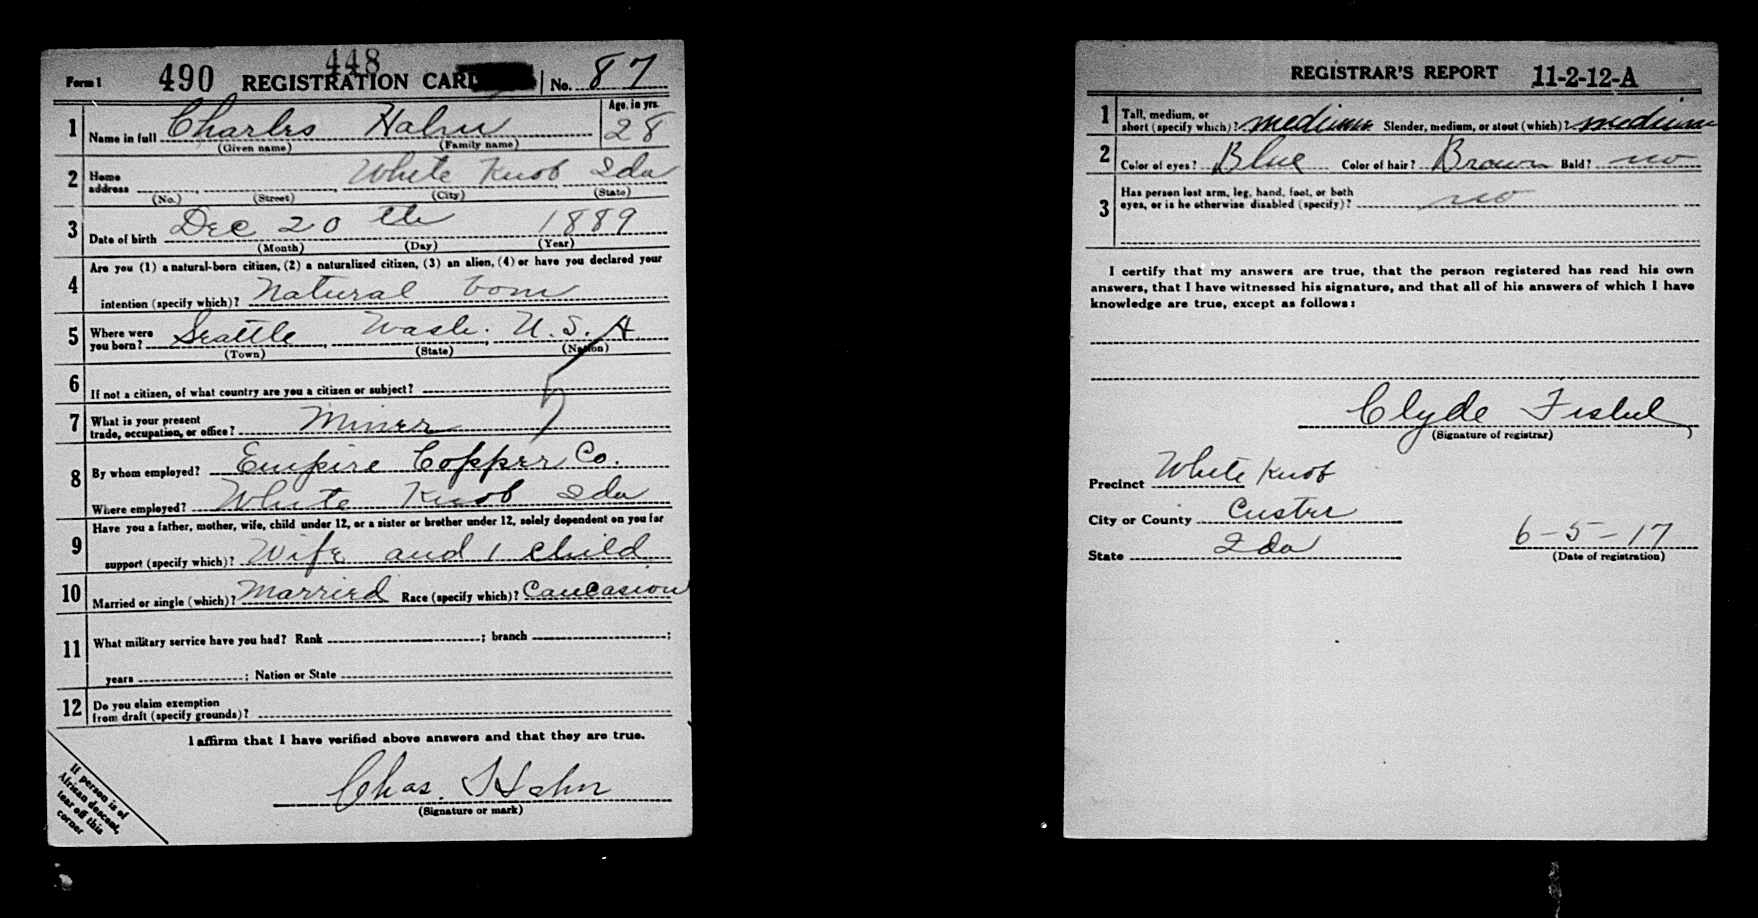 448
Form 1 490 REGISTRATION CARD No. 87
1 Name in full Charles Hahn Age, in yrs. 28
(Given name) (Family name)
2 Home address White Knob Ida
(No.) (Street) (City) (State)
3 Date of birth Dec 20 th 1889
(Month) (Day) (Year)
4 Are you (1) a natural-born citizen, (2) a naturalized citizen, (3) an alien, (4) or have you declared your
intention (specify which)? Natural born
5 Where were you born? Seattle Wash. U. S. A
(Town) (State) (Nation)
6 If not a citizen, of what country are you a citizen or subject?
7 What is your present trade, occupation, or office? Miner
8 By whom employed? Empire Copper Co.
Where employed? White Knob Ida
9 Have you a father, mother, wife, child under 12, or a sister or brother under 12, solely dependent on you for
support (specify which)? Wife and 1 child
10 Married or single (which)? Married Race (specify which)? Caucasion
11 What military service have you had? Rank ; branch ;
years ; Nation or State
12 Do you claim exemption from draft (specify grounds)?
I affirm that I have verified above answers and that they are true.
Chas. Hahn
(Signature or mark)
If person is of
African descent,
tear off this
corner
REGISTRAR'S REPORT 11-2-12-A
1 Tall, medium, or short (specify which)? medium Slender, medium, or stout (which)? medium
2 Color of eyes? Blue Color of hair? Brown Bald? no
3 Has person lost arm, leg, hand, foot, or both
eyes, or is he otherwise disabled (specify)? no
I certify that my answers are true, that the person registered has read his own
answers, that I have witnessed his signature, and that all of his answers of which I have
knowledge are true, except as follows:
Clyde
(Signature of registrar)
Precinct White Knob
City or County Custer
State Ida 6-5-17
(Date of registration)